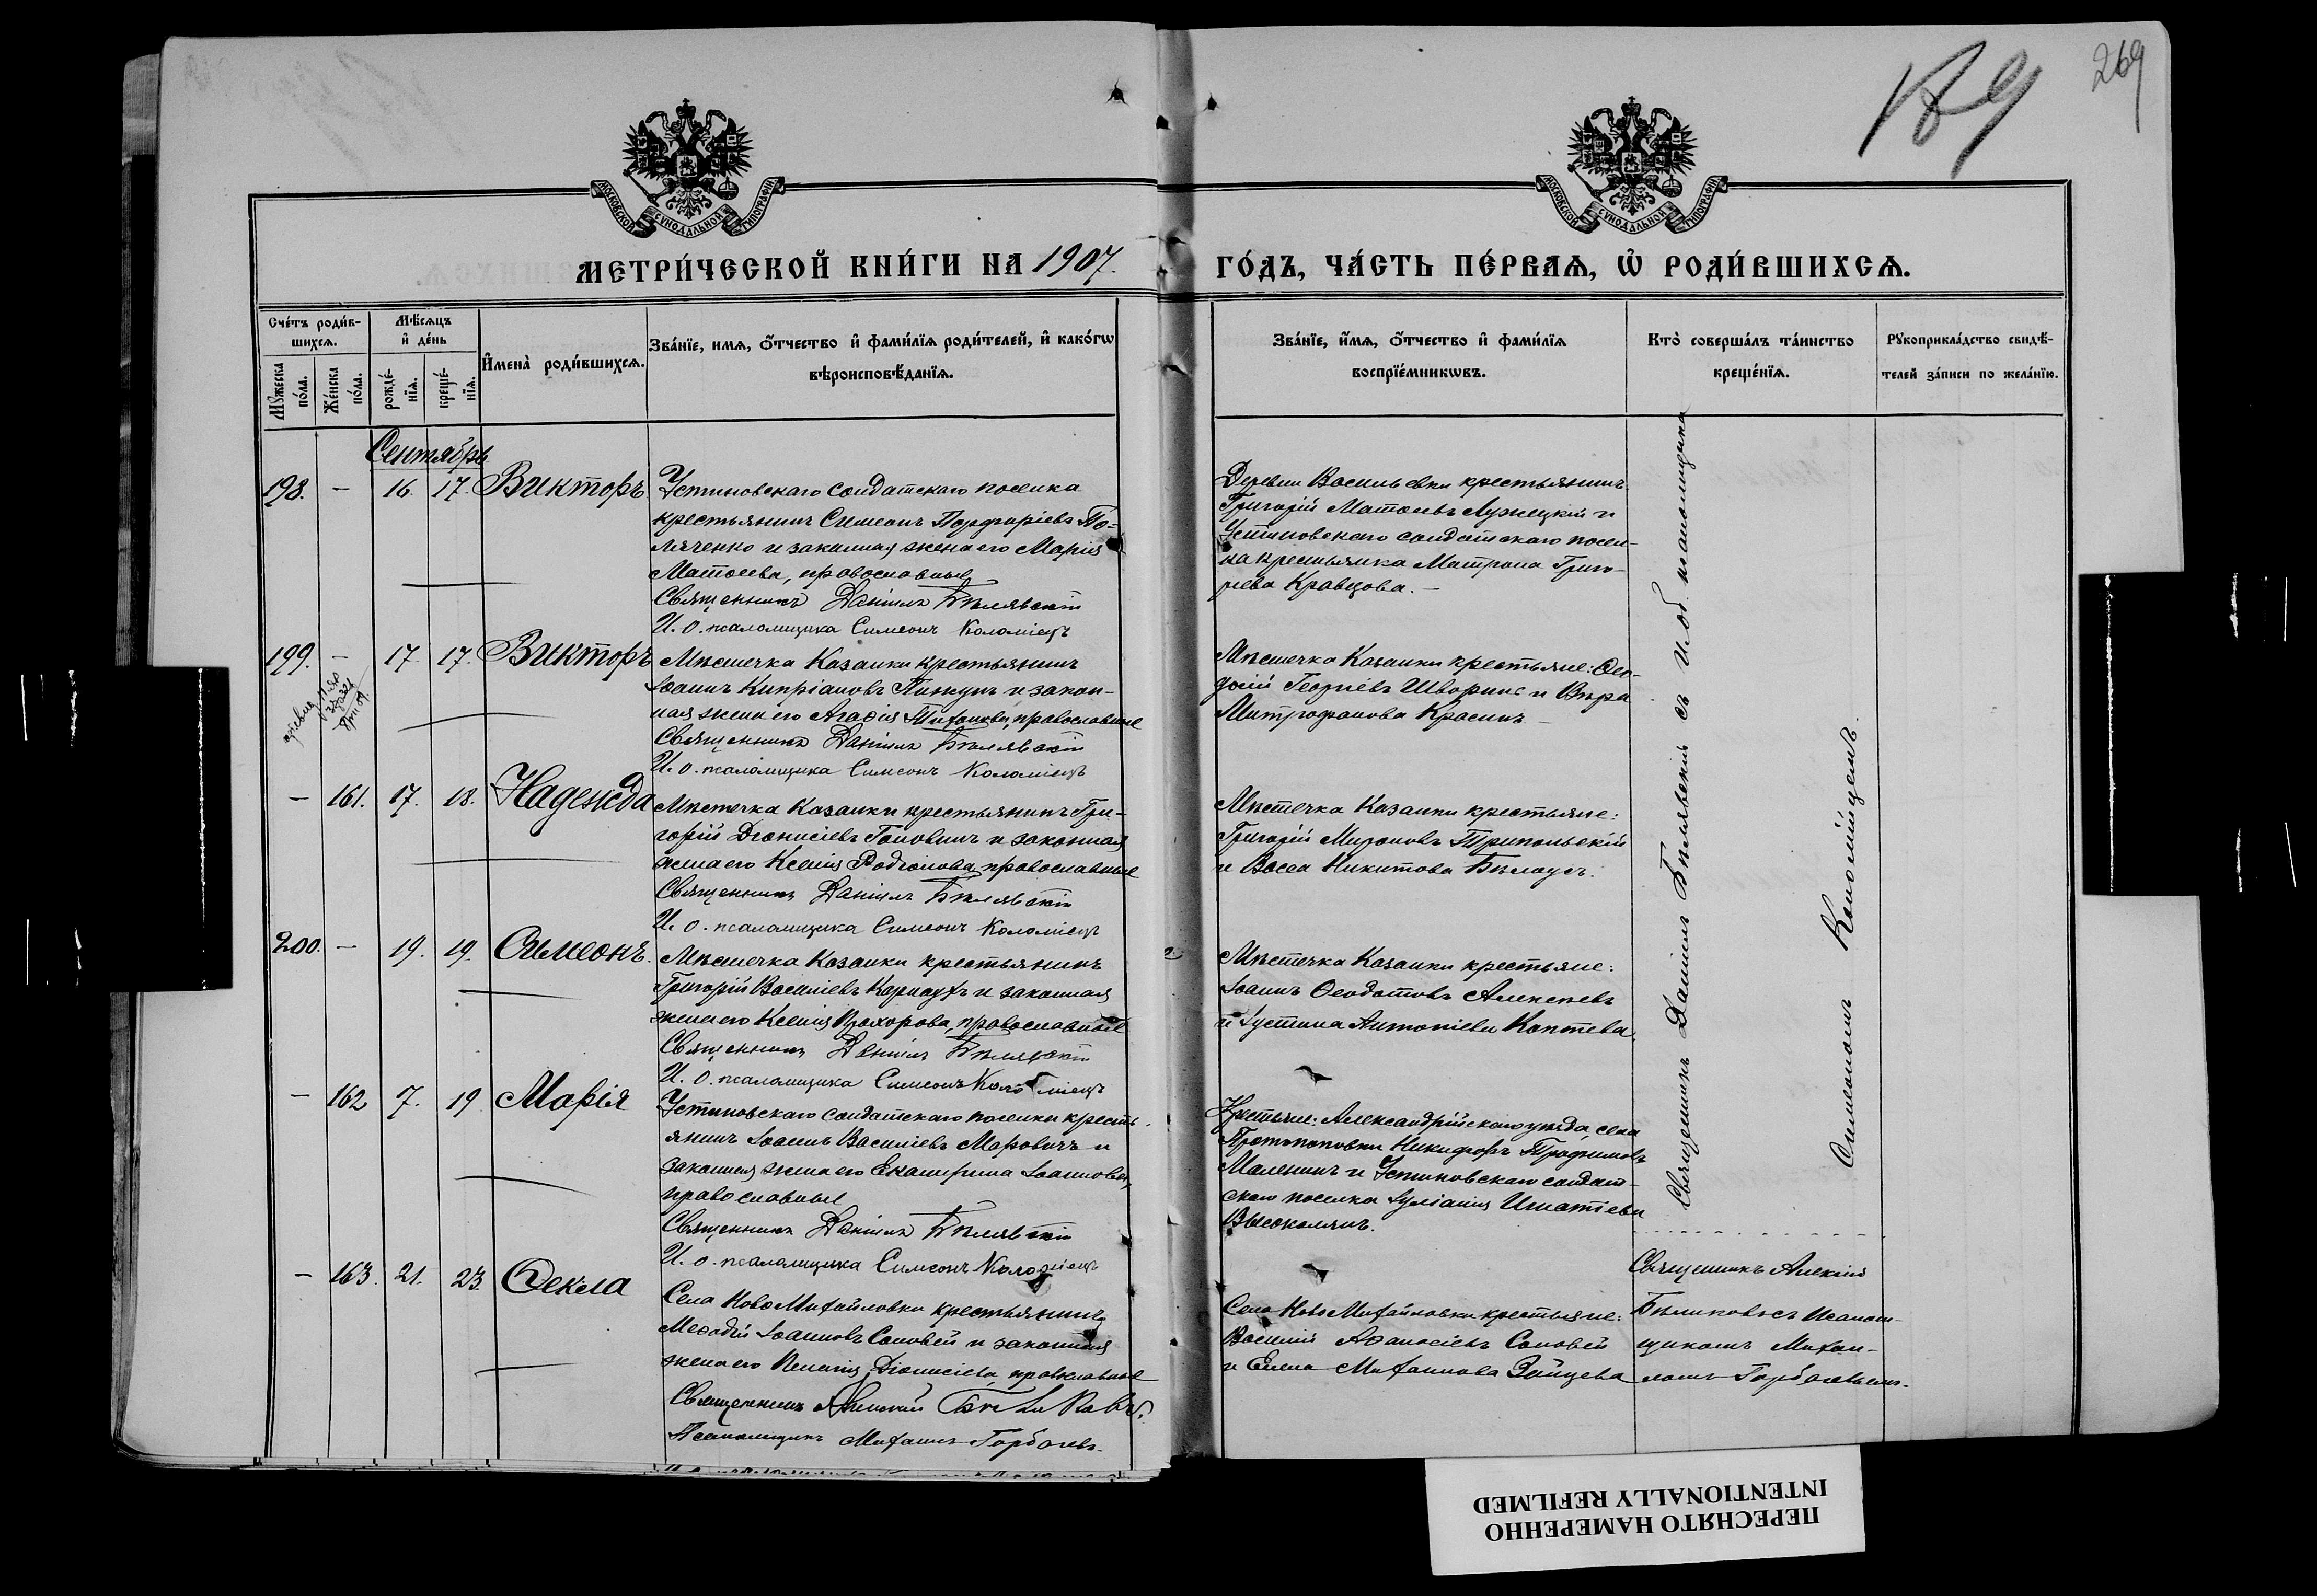 269
189
МОСКОВСКОЙ СѴНОДАЛЬНОЙ ТИПОГРАФІИ
МОСКОВСКОЙ СѴНОДАЛЬНОЙ ТИПОГРАФІИ
МЕТРИ́ЧЕСКОЙ КНИ́ГИ НА 1907.
ГО́ДЪ, ЧА́СТЬ ПЕ́РВАѦ, Ѡ҆ РОДИ́ВШИХСѦ.
Сче́тъ роди́в-
шихсѧ.
Мꙋ́жеска по́ла.
Же́нска по́ла.
Мѣ́сѧцъ
и҆ де́нь
рожде́-
нїѧ.
креще́-
нїѧ.
И҆мена̀ роди́вшихсѧ.
Зва́нїе, имѧ, о҆́тчество и҆ фами́лїѧ роди́телей, и҆ како́гѡ
вѣроисповѣ́данїѧ.
Зва́нїе, и҆́мѧ, о҆́тчество и҆ фами́лїѧ
воспрїе́мникѡвъ.
Кто̀ соверша́лъ та́инство
креще́нїѧ.
Рꙋкоприкла́дство свидѣ́-
телей за́писи по жела́нїю.
Сентябрь
198. — 16. 17. Викторъ.
Устиновскаго солдатскаго поселка
крестьянинъ Симеонъ Порфиріевъ По-
ляченко и законная жена его Марія
Матѳеева, православные
Священникъ Даніилъ Бѣлявскій
И. о. псаломщика Симеонъ Коломіецъ
Деревни Васильевки крестьянинъ
Григорій Матѳеевъ Лужецкій и
Устиновскаго солдатскаго посел-
ка крестьянка Матрона Григо-
рьева Кравцова. —
199. — 17. 17. Викторъ
Мѣстечка Казанки крестьянинъ
Іоаннъ Кипріановъ и закон-
ная жена его Агаѳія Тихонова, православные
Священникъ Даніилъ Бѣлявскій
И. о. псаломщика Симеонъ Коломіецъ
Мѣстечка Казанки крестьяне: Ѳео-
досій Георгіевъ и Вѣра
Митрофанова Красинъ —
— 161. 17. 18. Надежда
Мѣстечка Казанки крестьянинъ Гри-
горій Діонисіевъ Головинъ и законная
жена его Ксенія Родіонова, православные
Священникъ Даніилъ Бѣлявскій
И. о. псаломщика Симеонъ Коломіецъ
Мѣстечка Казанки крестьяне:
Григорій Мироновъ Трипольскій
и Васса Никитова Бѣлоусъ.
200. — 19. 19. Симеонъ.
Мѣстечка Казанки крестьянинъ
Григорій Василіевъ Карнаухъ и законная
жена его Ксенія Прохорова, православные
Священникъ Даніилъ Бѣлявскій
И. о. псаломщика Симеонъ Коломіецъ
Мѣстечка Казанки крестьяне:
Іоаннъ Ѳеодотовъ Алексѣевъ
и Іустина Антоніева Коптева.
— 162 7. 19. Марія
Устиновскаго солдатскаго поселка кресть-
янинъ Іоаннъ Василіевъ Маровичъ и
законная жена его Екатерина Іоаннова,
православные
Священникъ Даніилъ Бѣлявскій
И. о. псаломщика Симеонъ Коломіецъ
Крестьяне: Александрійскаго уѣзда, села
Протопоповки Никифоръ Трофимовъ
Маленинъ и Устиновскаго солдат-
скаго поселка Іуліанія Игнатіева
.
Священникъ Даніилъ Бѣлявскій съ И. об. псаломщика
Симеономъ Коломійцемъ.
— 163. 21. 23. Ѳекла
Села Ново Михайловки крестьянинъ
Меѳодій Іоанновъ Соловей и законная
жена его Пелагія Діонисіева, православные
Священникъ Алексій Бѣликовъ.
Псаломщикъ Михаилъ Горбачевъ.
Села Ново Михайловки крестьяне:
Василій Аѳанасіевъ Соловей
и Елена Михаилова Зайцева
Священникъ Алексій
Бѣликовъ съ псалом-
щикомъ Михаи-
ломъ Горбачевымъ.
ПЕРЕСНЯТО НАМЕРЕННО
INTENTIONALLY REFILMED